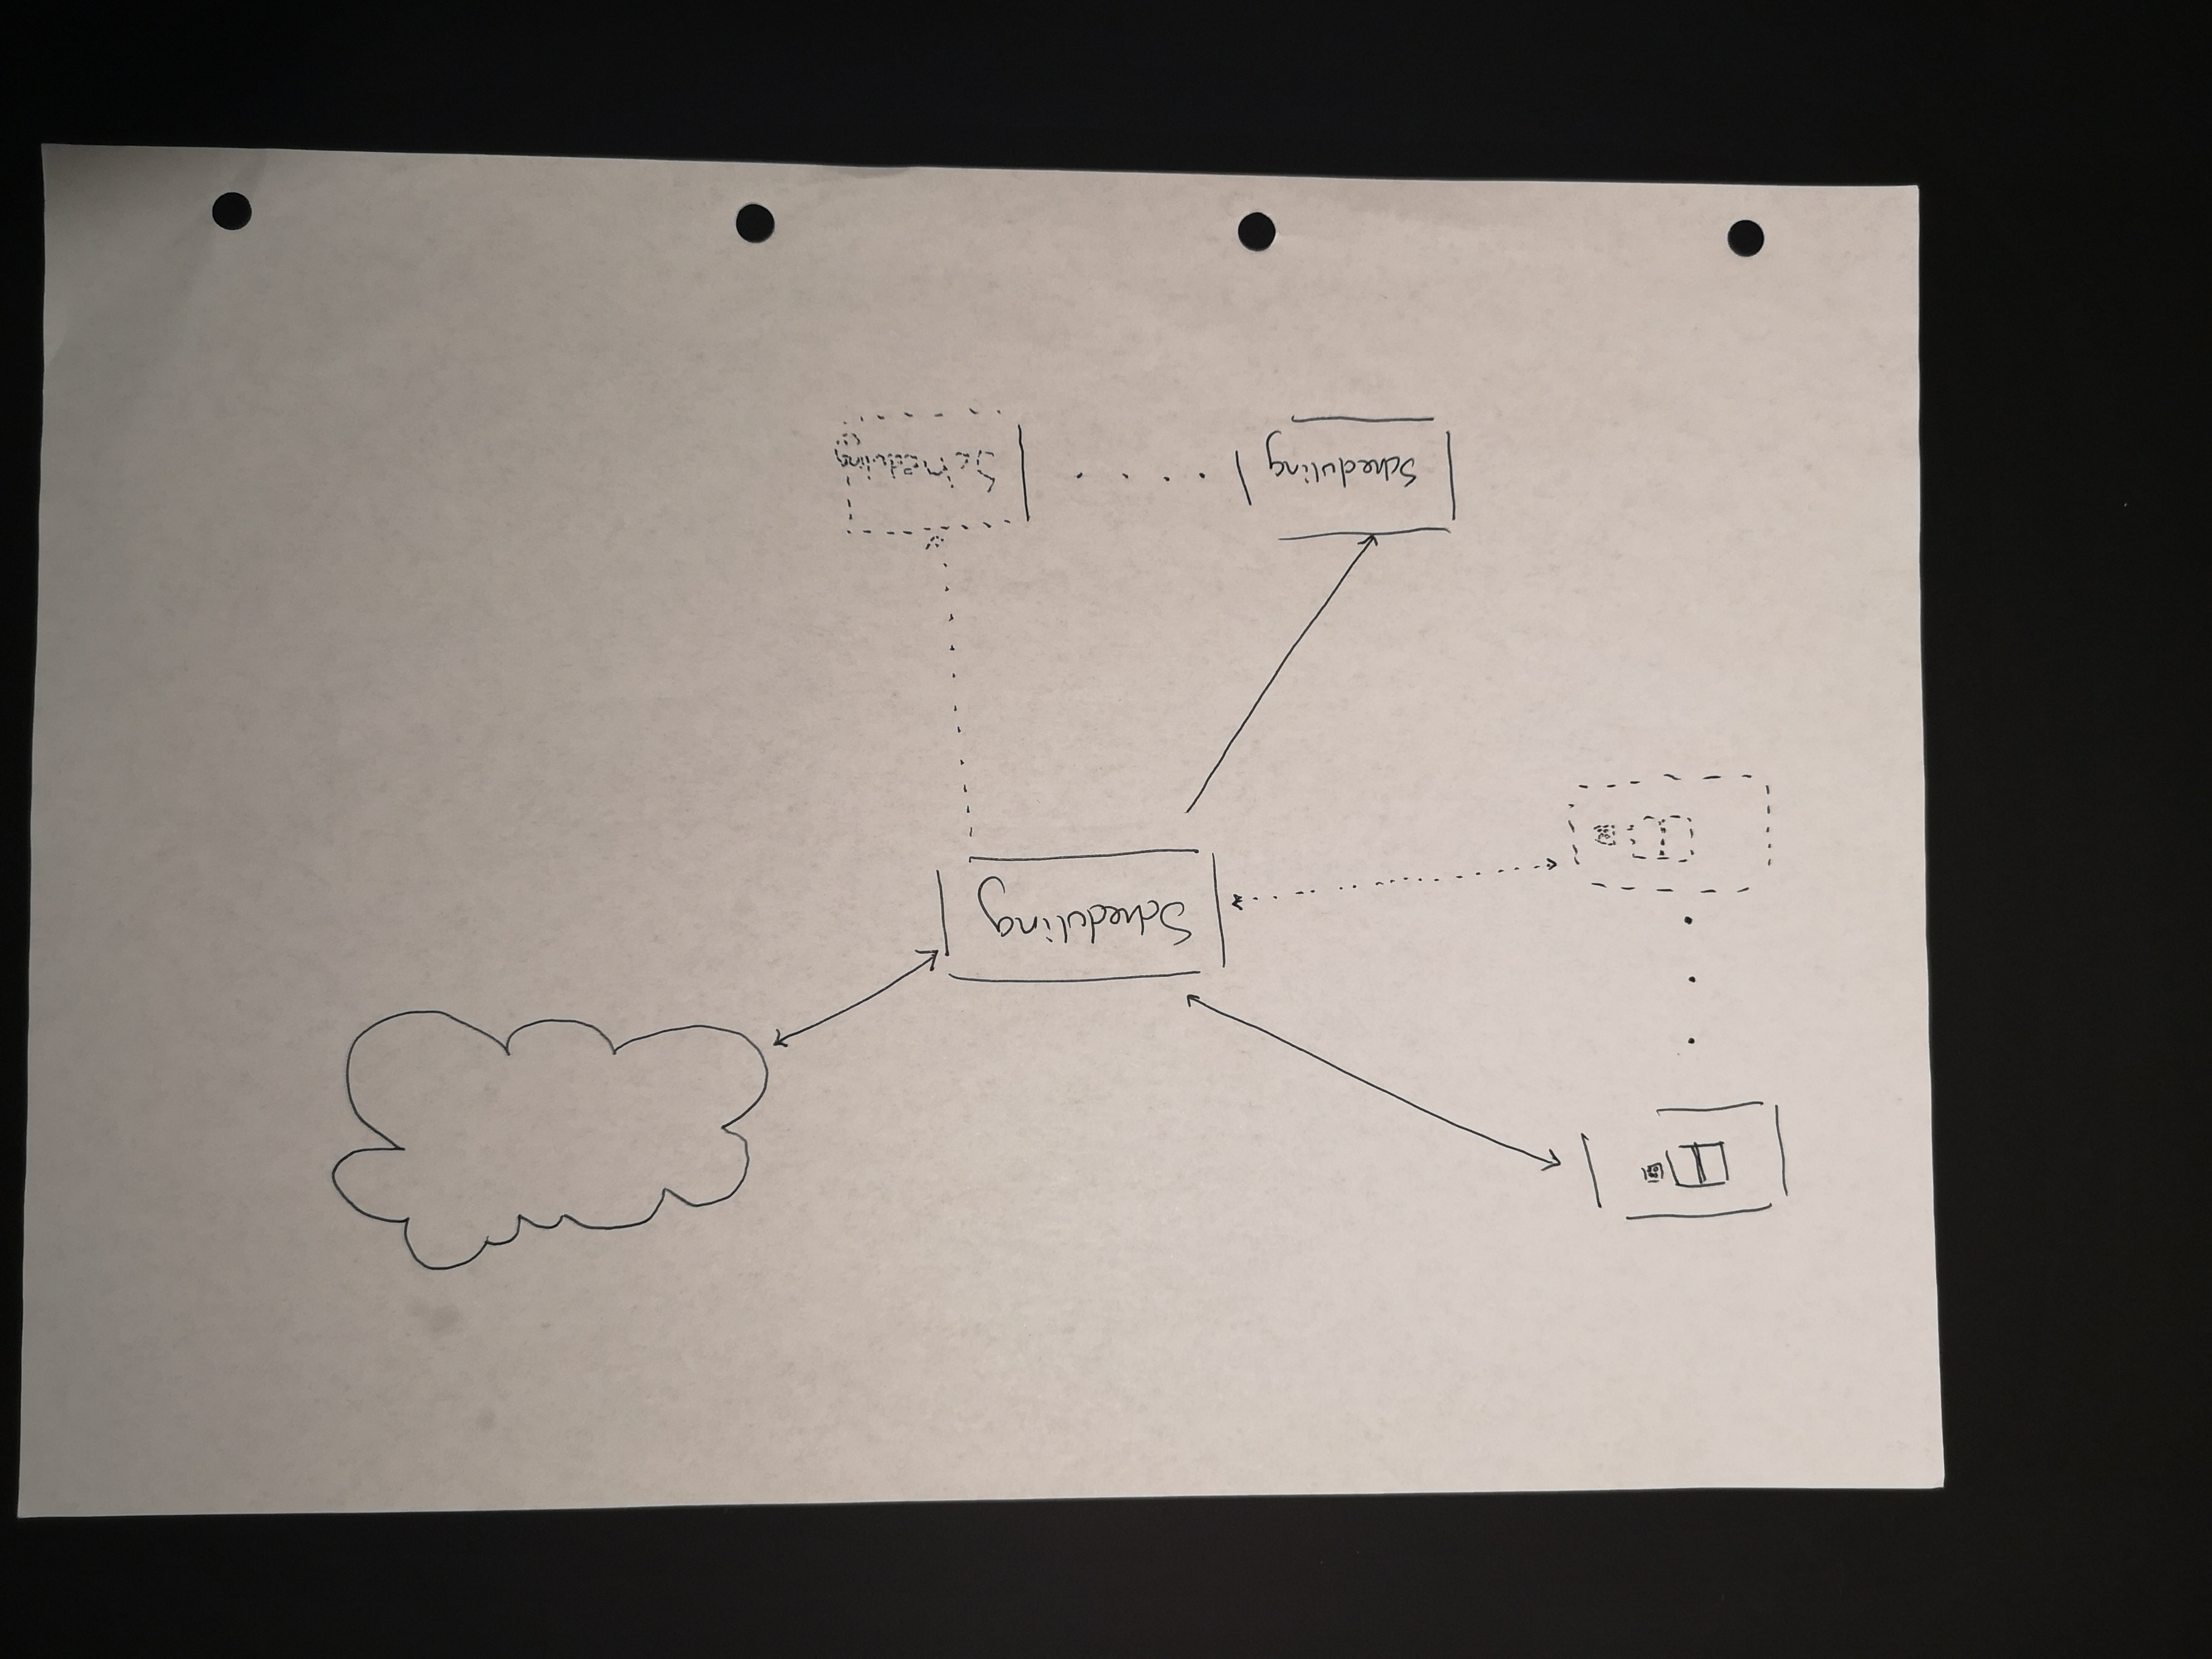 Scheduling
Scheduling
Scheduling